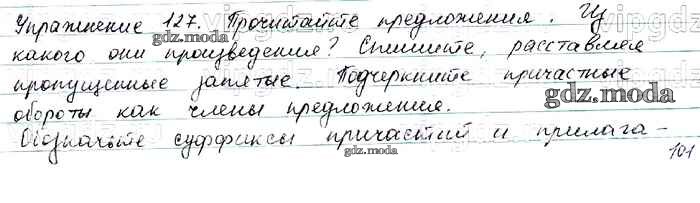 Упражнение 127. Прочитайте предложения. Из
какого они произведения? Спишите, расставляя
пропущенные запятые. Подчеркните причастные
обороты как члены предложения.
Обозначьте суффиксы причастий и прилага-
101
gdz.moda
gdz.moda
gdz.moda
gdz.moda
gdz.moda